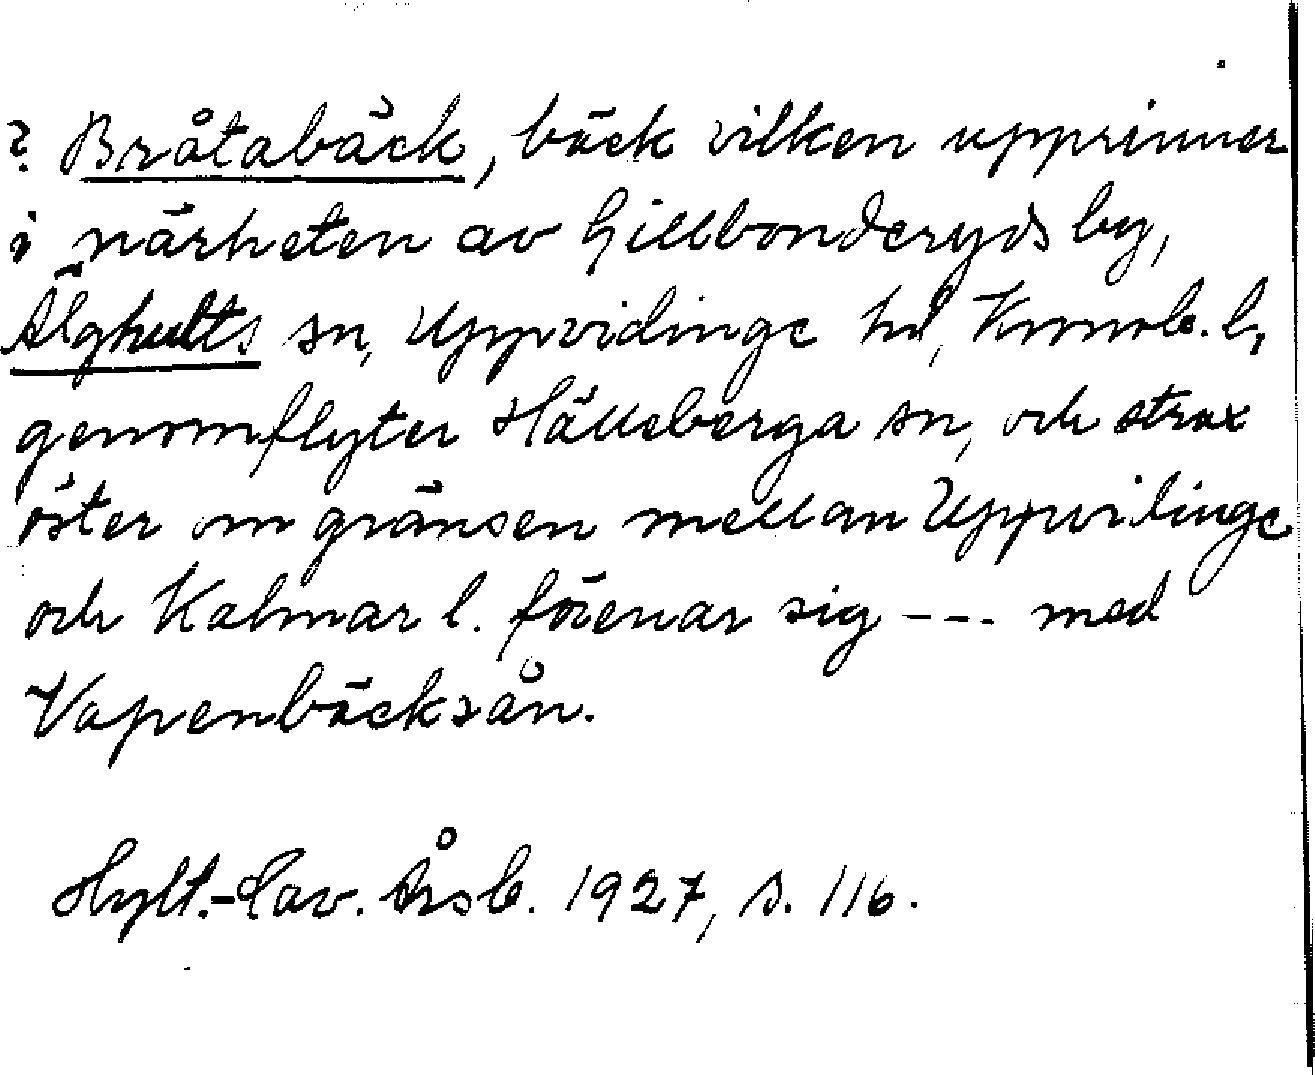 ? Bråtabäck, bäck vilken upprinner
i närheten av Gillbonderyds by,
Älghults sn, Uppvidinge hd, Kronob. l,
genomflyter Hälleberga sn, och strax
öster om gränsen mellan Uppvidinge
och Kalmar l. förenar sig --- med
Vapenbäcksån.
Hylt.-Cav. Årsb. 1927, s. 116.